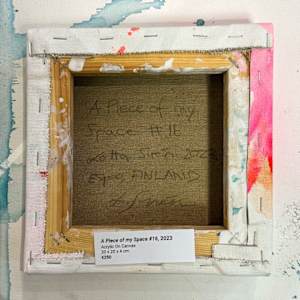 A Piece of my
Space #16
Lotta Sirén 2023
Espoo, FINLAND
A Piece of my Space #16, 2023
Acrylic On Canvas
20 x 20 x 4 cm
€250